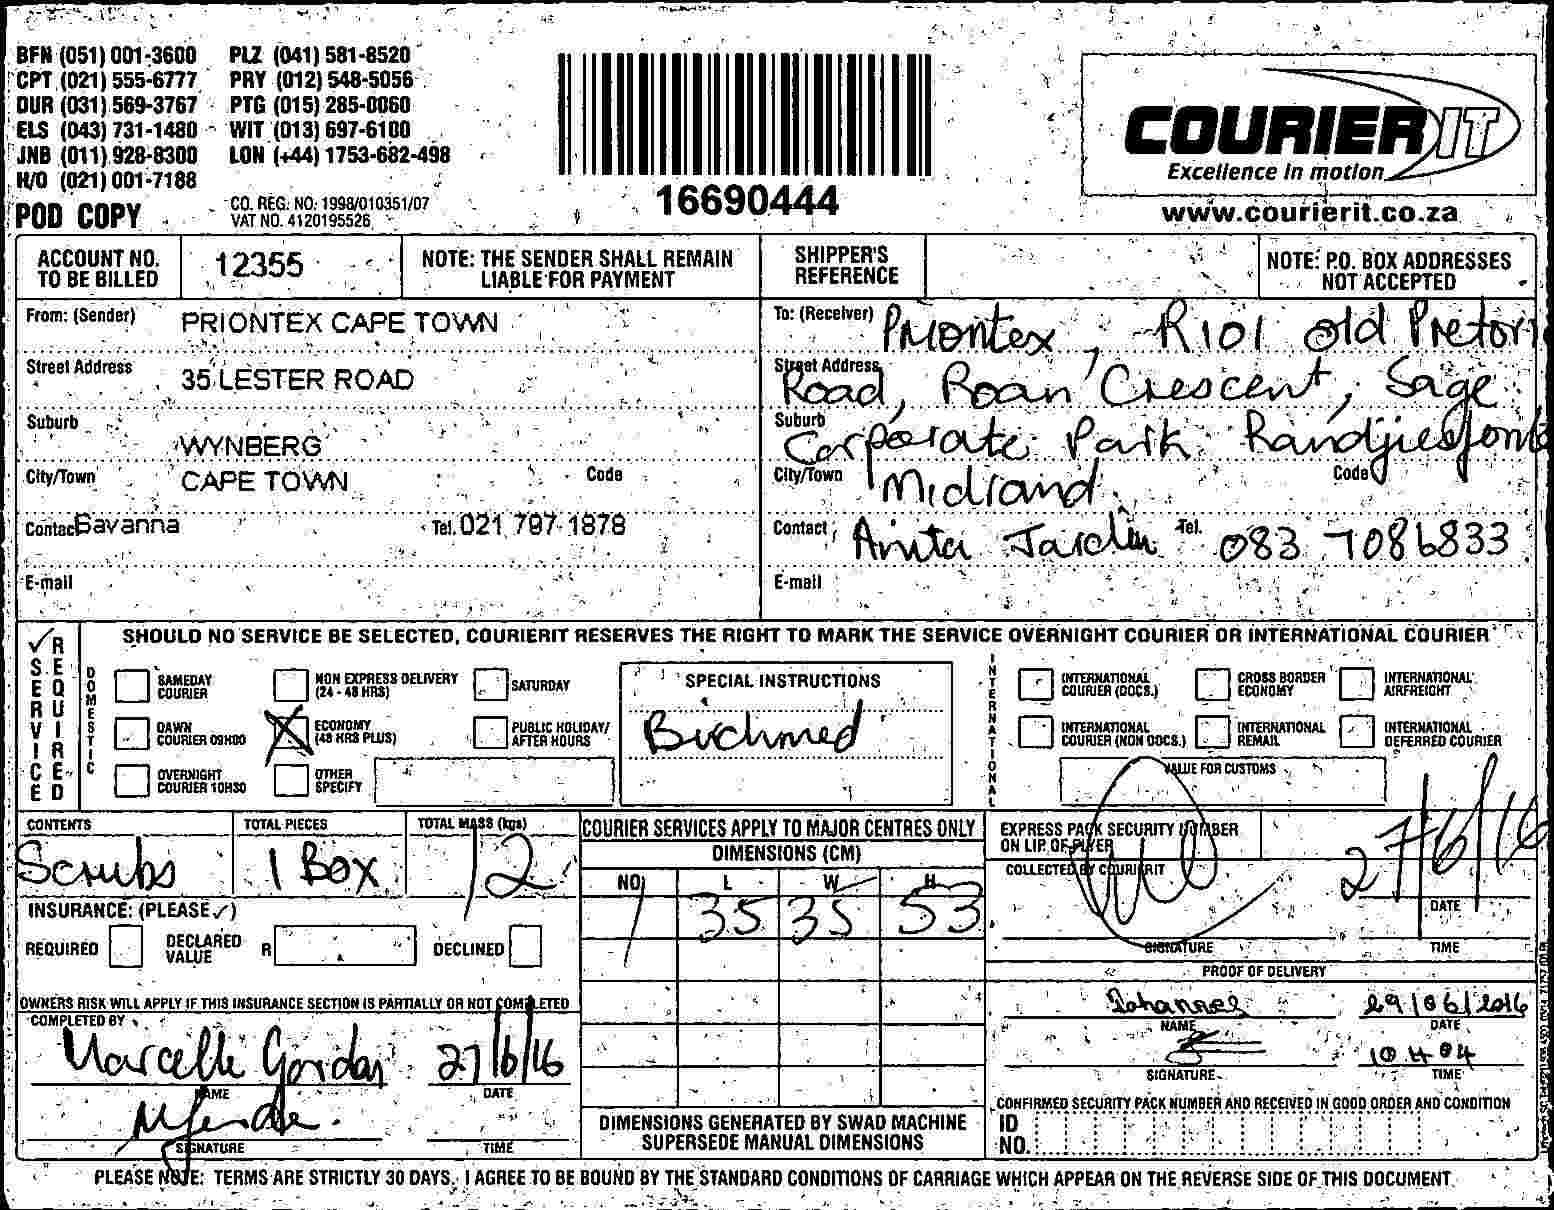 BFN (051) 001-3600 PLZ (041) 581-8520
CPT (021) 555-6777 PRY (012) 548-5056
DUR (031) 569-3767 PTG (015) 285-0060
ELS (043) 731-1480 WIT (013) 697-6100
JNB (011) 928-8300 LON (+44) 1753-682-498
H/O (021) 001-7188
POD COPY
CO. REG. NO: 1998/010351/07
VAT NO. 4120195526
16690444
COURIER IT
Excellence in motion
www.courierit.co.za
ACCOUNT NO. TO BE BILLED
12355
NOTE: THE SENDER SHALL REMAIN LIABLE FOR PAYMENT
SHIPPER'S REFERENCE
NOTE: P.O. BOX ADDRESSES NOT ACCEPTED
From: (Sender) PRIONTEX CAPE TOWN
Street Address 35 LESTER ROAD
Suburb WYNBERG
City/Town CAPE TOWN Code
Contact Savanna Tel. 021 797 1878
E-mail
To: (Receiver) Priontex, R101 Old Pretori
Street Address Road, Roan Crescent, Sage
Suburb Corporate Park Randjiesfont
City/Town Midrand Code
Contact Anita Jardin Tel. 083 7086833
E-mail
SERVICE REQUIRED
SHOULD NO SERVICE BE SELECTED, COURIERIT RESERVES THE RIGHT TO MARK THE SERVICE OVERNIGHT COURIER OR INTERNATIONAL COURIER
DOMESTIC
SAMEDAY COURIER
NON EXPRESS DELIVERY (24 - 48 HRS)
SATURDAY
DAWN COURIER 09H00
ECONOMY (48 HRS PLUS)
PUBLIC HOLIDAY/ AFTER HOURS
OVERNIGHT COURIER 10H30
OTHER SPECIFY
SPECIAL INSTRUCTIONS
Birchmed
INTERNATIONAL
INTERNATIONAL COURIER (DOCS.)
CROSS BORDER ECONOMY
INTERNATIONAL AIRFREIGHT
INTERNATIONAL COURIER (NON DOCS.)
INTERNATIONAL REMAIL
INTERNATIONAL DEFERRED COURIER
VALUE FOR CUSTOMS
CONTENTS
Scrubs
TOTAL PIECES
1 Box
TOTAL MASS (kgs)
12
INSURANCE: (PLEASE ✓)
REQUIRED
DECLARED VALUE R
DECLINED
OWNERS RISK WILL APPLY IF THIS INSURANCE SECTION IS PARTIALLY OR NOT COMPLETED
COMPLETED BY
Marcelle Gordon 27/6/16
NAME DATE
SIGNATURE TIME
COURIER SERVICES APPLY TO MAJOR CENTRES ONLY
DIMENSIONS (CM)
NO L W H
1 35 35 53
DIMENSIONS GENERATED BY SWAD MACHINE SUPERSEDE MANUAL DIMENSIONS
EXPRESS PACK SECURITY NUMBER ON LIP OF FLYER
COLLECTED BY COURIERIT
27/6/16
DATE
SIGNATURE TIME
PROOF OF DELIVERY
Johannes 29/06/2016
NAME DATE
10H04
SIGNATURE TIME
CONFIRMED SECURITY PACK NUMBER AND RECEIVED IN GOOD ORDER AND CONDITION
ID NO.
PLEASE NOTE: TERMS ARE STRICTLY 30 DAYS. I AGREE TO BE BOUND BY THE STANDARD CONDITIONS OF CARRIAGE WHICH APPEAR ON THE REVERSE SIDE OF THIS DOCUMENT